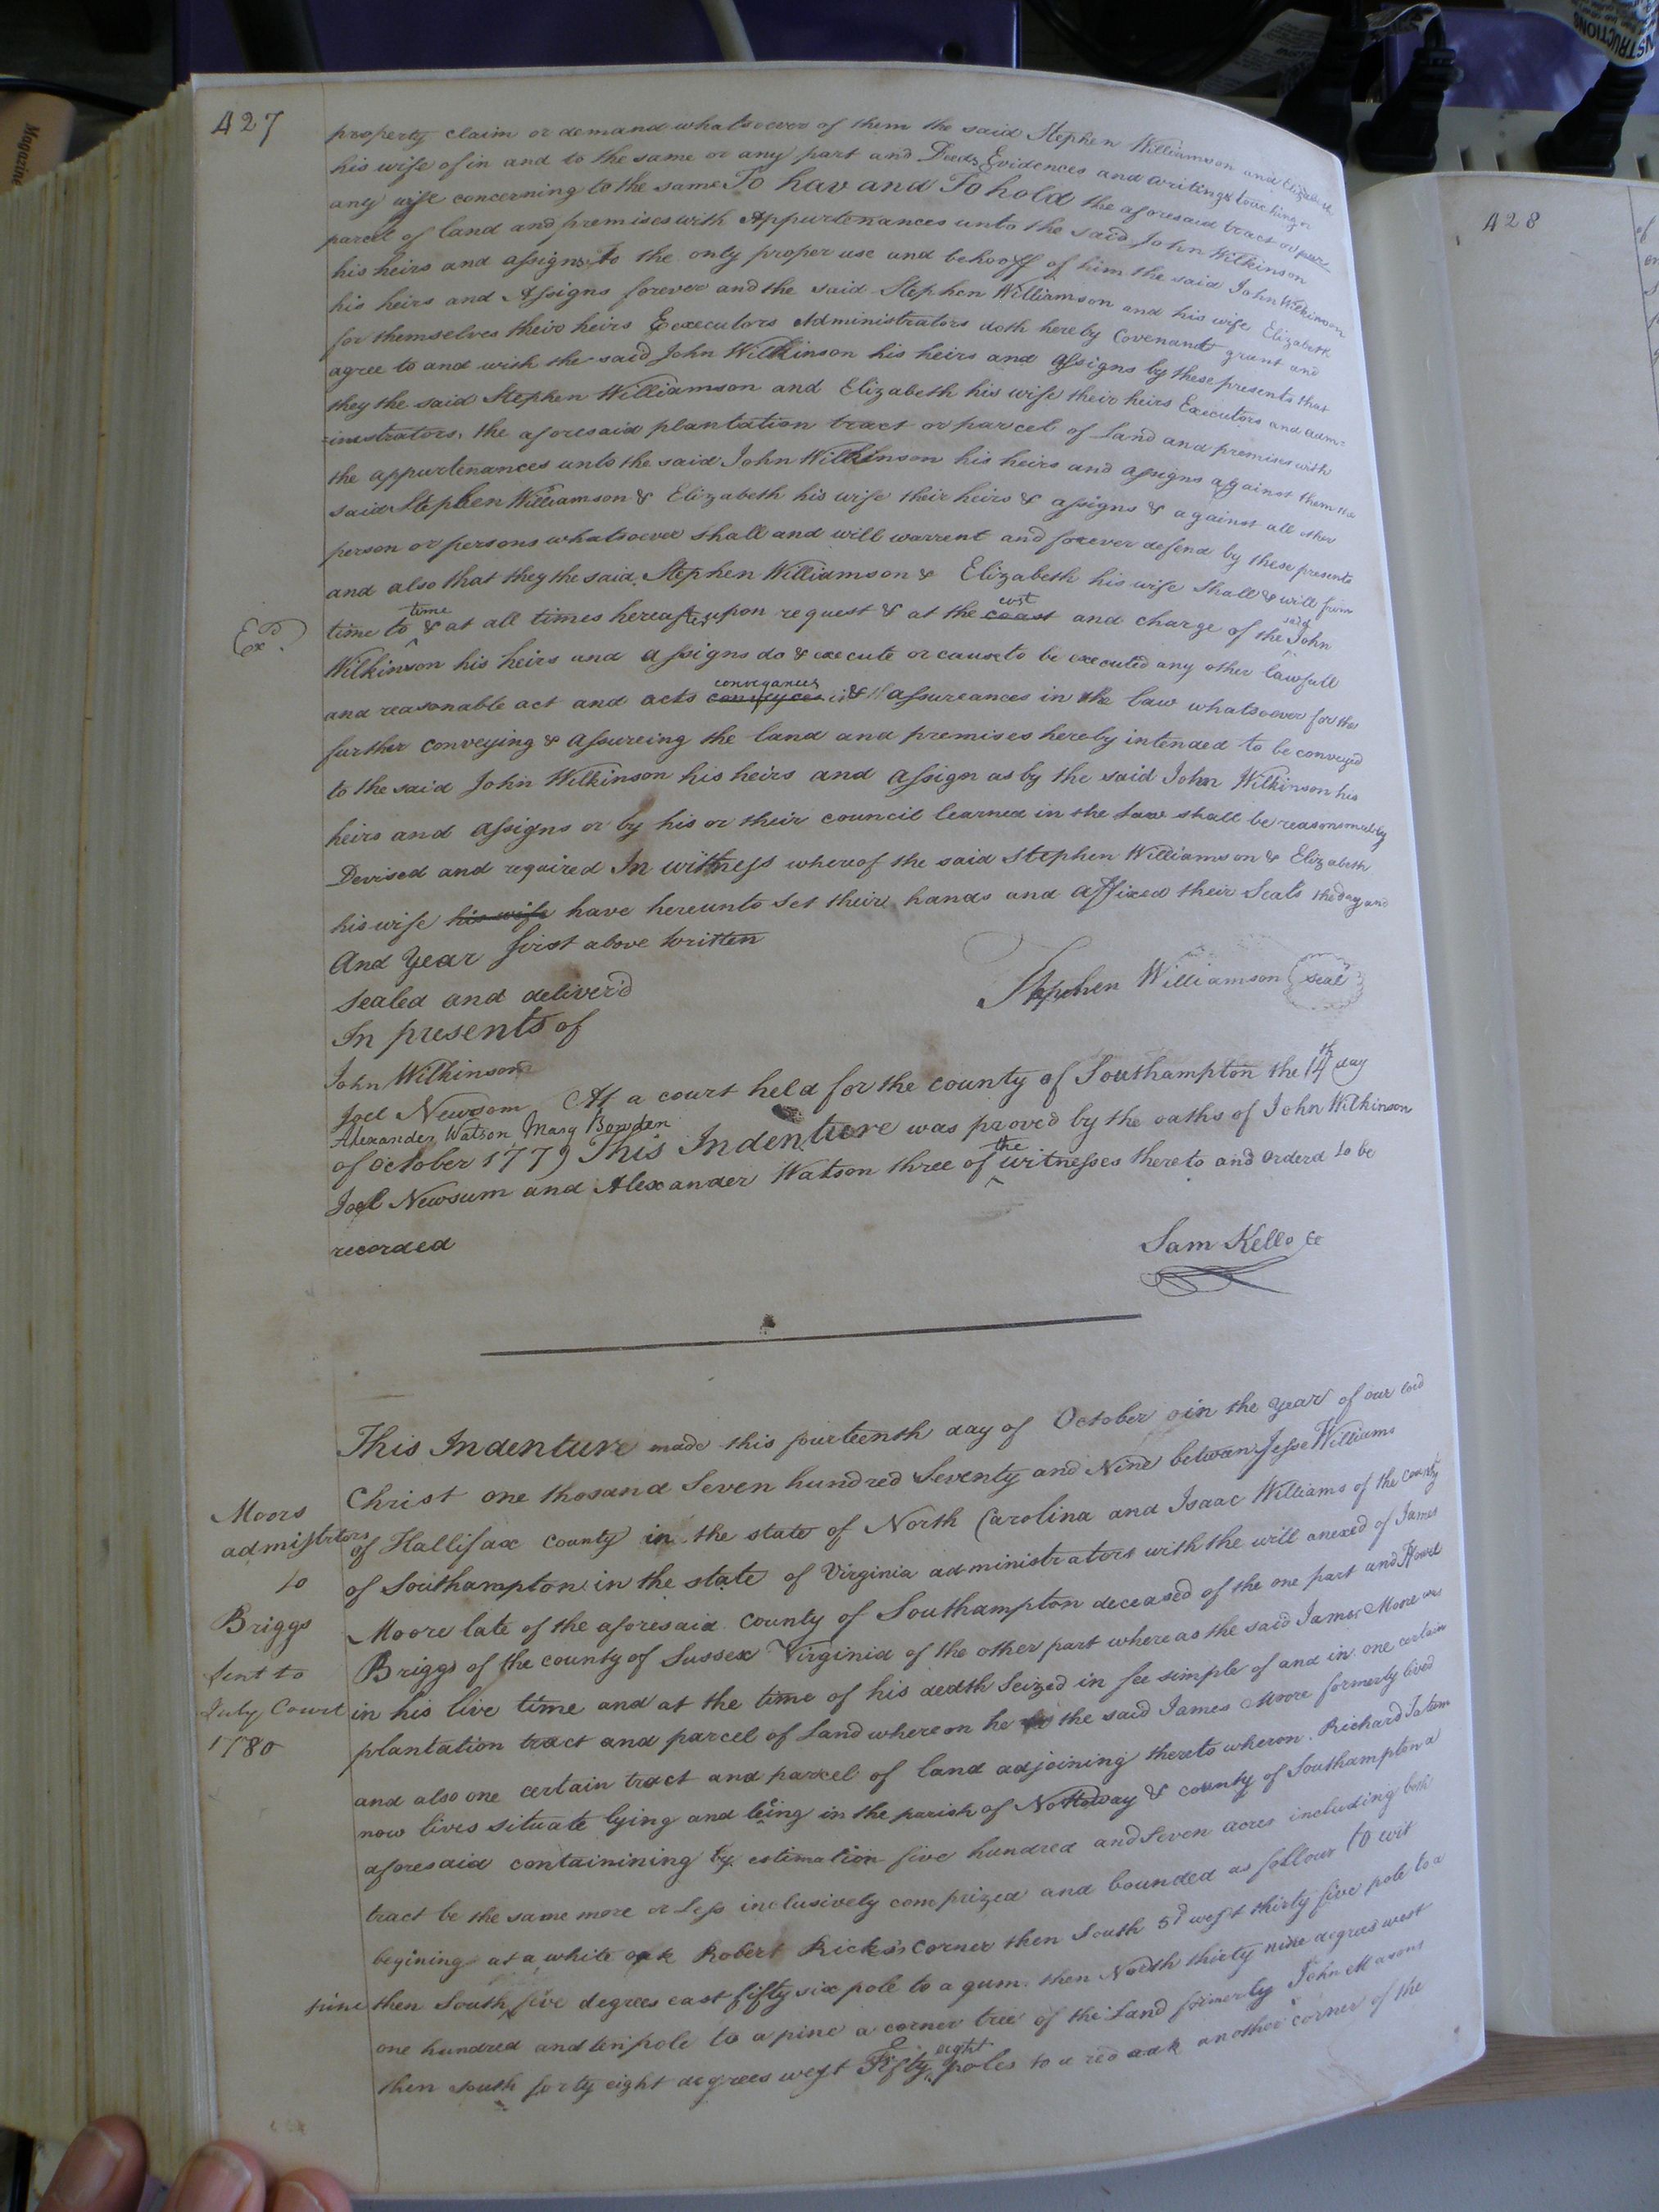 427
property claim or demand whatsoever of them the said Stephen Williamson and Elizabeth
his wife of in and to the same or any part and Deeds Evidences and writings touching or
any wise concerning to the same To hav and To hold the aforesaid tract or par-
parcel of land and premises with Appurtenances unto the said John Wilkinson
his heirs and assigns To the only proper use and behooff of him the said John Wilkinson
his heirs and Assigns forever and the said Stephen Williamson and his wife Elizabeth
for themselves their heirs Executors Administrators doth hereby Covenant grant and
agree to and with the said John Wilkinson his heirs and assigns by these presents that
they the said Stephen Williamson and Elizabeth his wife their heirs Executors and adm=
=inistrators, the aforesaid plantation tract or parcel of Land and premises with
the appurtenances unto the said John Wilkinson his heirs and assigns against them the
said Stephen Williamson & Elizabeth his wife their heirs & assigns & against all other
person or persons whatsoever shall and will warrent and forever defend by these presents
and also that they the said Stephen Williamson & Elizabeth his wife Shall & will from
Ex.d time to time & at all times hereafter upon request & at the coast cost and charge of the said John
Wilkinson his heirs and assigns do & execute or cause to be executed any other lawfull
and reasonable act and acts conveyances & assureances in the law whatsoever for the
further conveying & assureing the land and premises hereby intended to be conveyed
to the said John Wilkinson his heirs and assign as by the said John Wilkinson his
heirs and assigns or by his or their council learned in the Law shall be
Devised and required In wittness whereof the said Stephen Williamson & Elizabeth
his wife his wife have hereunto set their hands and affixed their Seals the day and
And Year first above written
Sealed and deliver'd
In presents of
Stephen Williamson seal
John Wilkinson
Joel Newsom At a court held for the county of Southampton the 14th day
Alexander Watson Mary Bowden
of October 1779 This Indenture was proved by the oaths of John Wilkinson
Joel Newsum and Alexander Watson three of the witnesses thereto and orderd to be
recorded
Sam Kello Cc
This Indenture made this fourteenth day of October in the year of our lord
Christ one thosand Seven hundred Seventy and Nine between Jesse Williams
Moors
admistrators
to
Briggs
Sent to
July Court
1780
of Hallifax County in the state of North Carolina and Isaac Williams of the County
of Southampton in the state of Virginia administrators with the will anexed of James
Moore late of the aforesaid County of Southampton deceased of the one part and Howel
Briggs of the county of Sussex Virginia of the other part whereas the said James Moore was
in his live time and at the time of his death Seized in fee simple of and in one certain
plantation tract and parcel of Land whereon he the said James Moore formerly lived
and also one certain tract and parcel of land adjoining thereto wheron Richard Tatum
now lives situate lying and being in the parish of Nottoway & county of Southampton
aforesaid containining by estimation five hundred and Seven acres including both
tract be the same more or Less inclusively comprized and bounded as follour to wit
begining at a white oak Robert Ricks's Corner then South 5d west thirty five pole to a
pine then South five degrees east fifty six pole to a gum then North thirty nine degrees west
one hundred and ten pole to a pine a corner tree of the Land formerly John Masons
then south forty eight degrees west Fifty eight poles to a red oak another corner of the
428